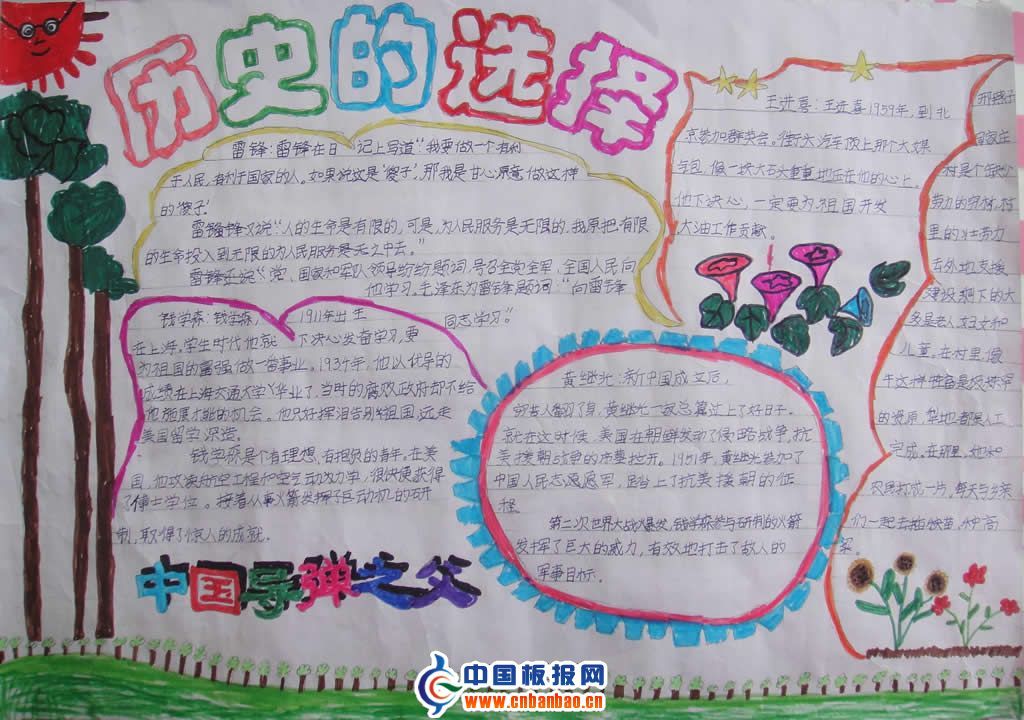 历史的选择
雷锋:雷锋在日 记上写道“我要做一个有利
于人民,有利于国家的人。如果说这是‘傻子’,那我是甘心愿意做这种
的‘傻子’
雷锋又说“人的生命是有限的,可是,为人民服务是无限的,我原把有限
的生命投入到无限的为人民服务是无之中去。”
雷锋还说“党、国家和军队领导纷纷题词,号召全党全军、全国人民向
他学习。毛泽东为雷锋题词:“向雷锋
同志学习”。
钱学森:钱学森, 1911年出生
在上海。学生时代他就 下决心发奋学习,要
为祖国的富强做一番事业。1934年,他以优异的
成绩在上海交通大学毕业了,当时的腐败政府却不给
他施展才能的机会。他只好挥泪告别祖国,远走
美国留学深造。
钱学森是个有理想、有抱负的青年,在美
国,他攻读航空工程和空气动力学,很快便获得
了博士学位。接着从事火箭发挥了巨动机的研
制,取得了惊人的成就。
中国导弹之父
黄继光:新中国成立后,
穷苦人翻了身,黄继光一家总算过上了好日子。
就在这时候,美国在朝鲜发动了侵略战争,抗
美援朝战争的序幕拉开。1951年,黄继光参加了
中国人民志愿军,踏上了抗美援朝的征
程
第二次世界大战爆发,钱学森参与研制的火箭
发挥了巨大的威力,有效地打击了敌人的
军事目标。
王进喜:王进喜1959年,到北
京参加群英会。街大汽车顶上那个大煤
气包,像一块大石头重重地压在他的心上。
他下决心,一定要为祖国开发
大油工作贡献。
邢燕子
司家庄
村是个缺少
劳力的穷村,村
里的壮劳力
去外地支援
建设,剩下的大
多是老人妇女和
儿童。在村里,像
的资原,荒地都是人工
完成。在那里,她和
农民打成一片,每天与乡亲
们一起去插秧苗、种高
中国板报网
www.cnbanbao.cn